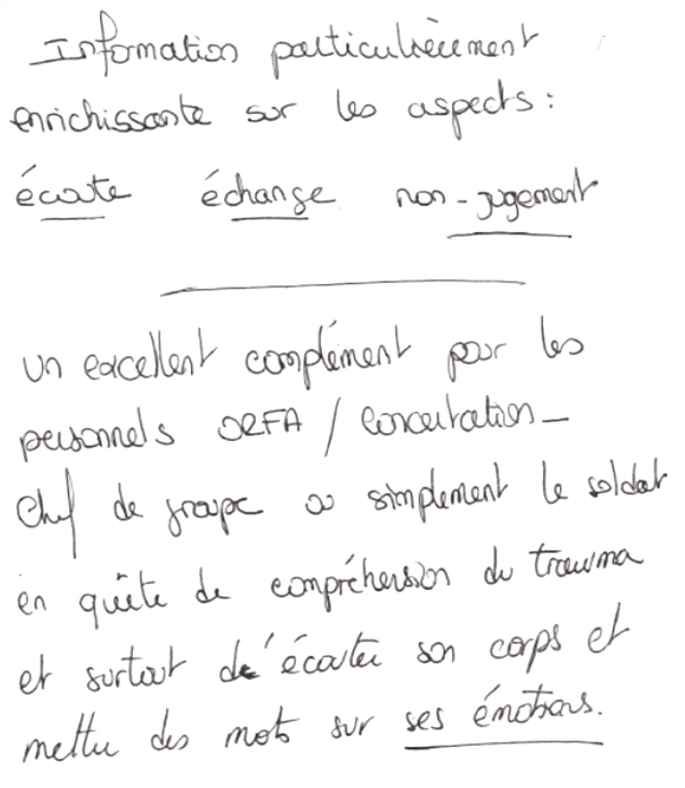 Information particulièrement
enrichissante sur les aspects :
écoute échange non-jugement
un excellent complément pour les
personnels ORFA / Concertation -
Chef de groupe ou simplement le soldat
en quête de compréhension du trauma
et surtout d'écouter son corps et
mettre des mots sur ses émotions.